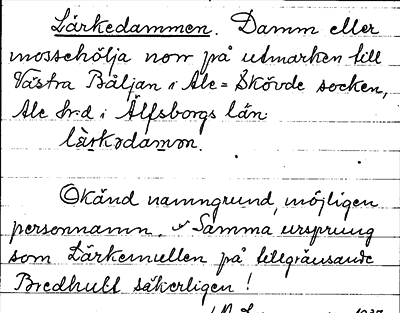 Lärkedammen. Damm eller
mossehölja norr på utmarken till
Västra Båljan i Ale=Skövde socken,
Ale hrd i Älfsborgs län
lærkədamən.
Okänd namngrund, möjligen
personnamn. Samma ursprung
som Lärkemullen på tillgränsande
Bredhult säkerligen!
1937